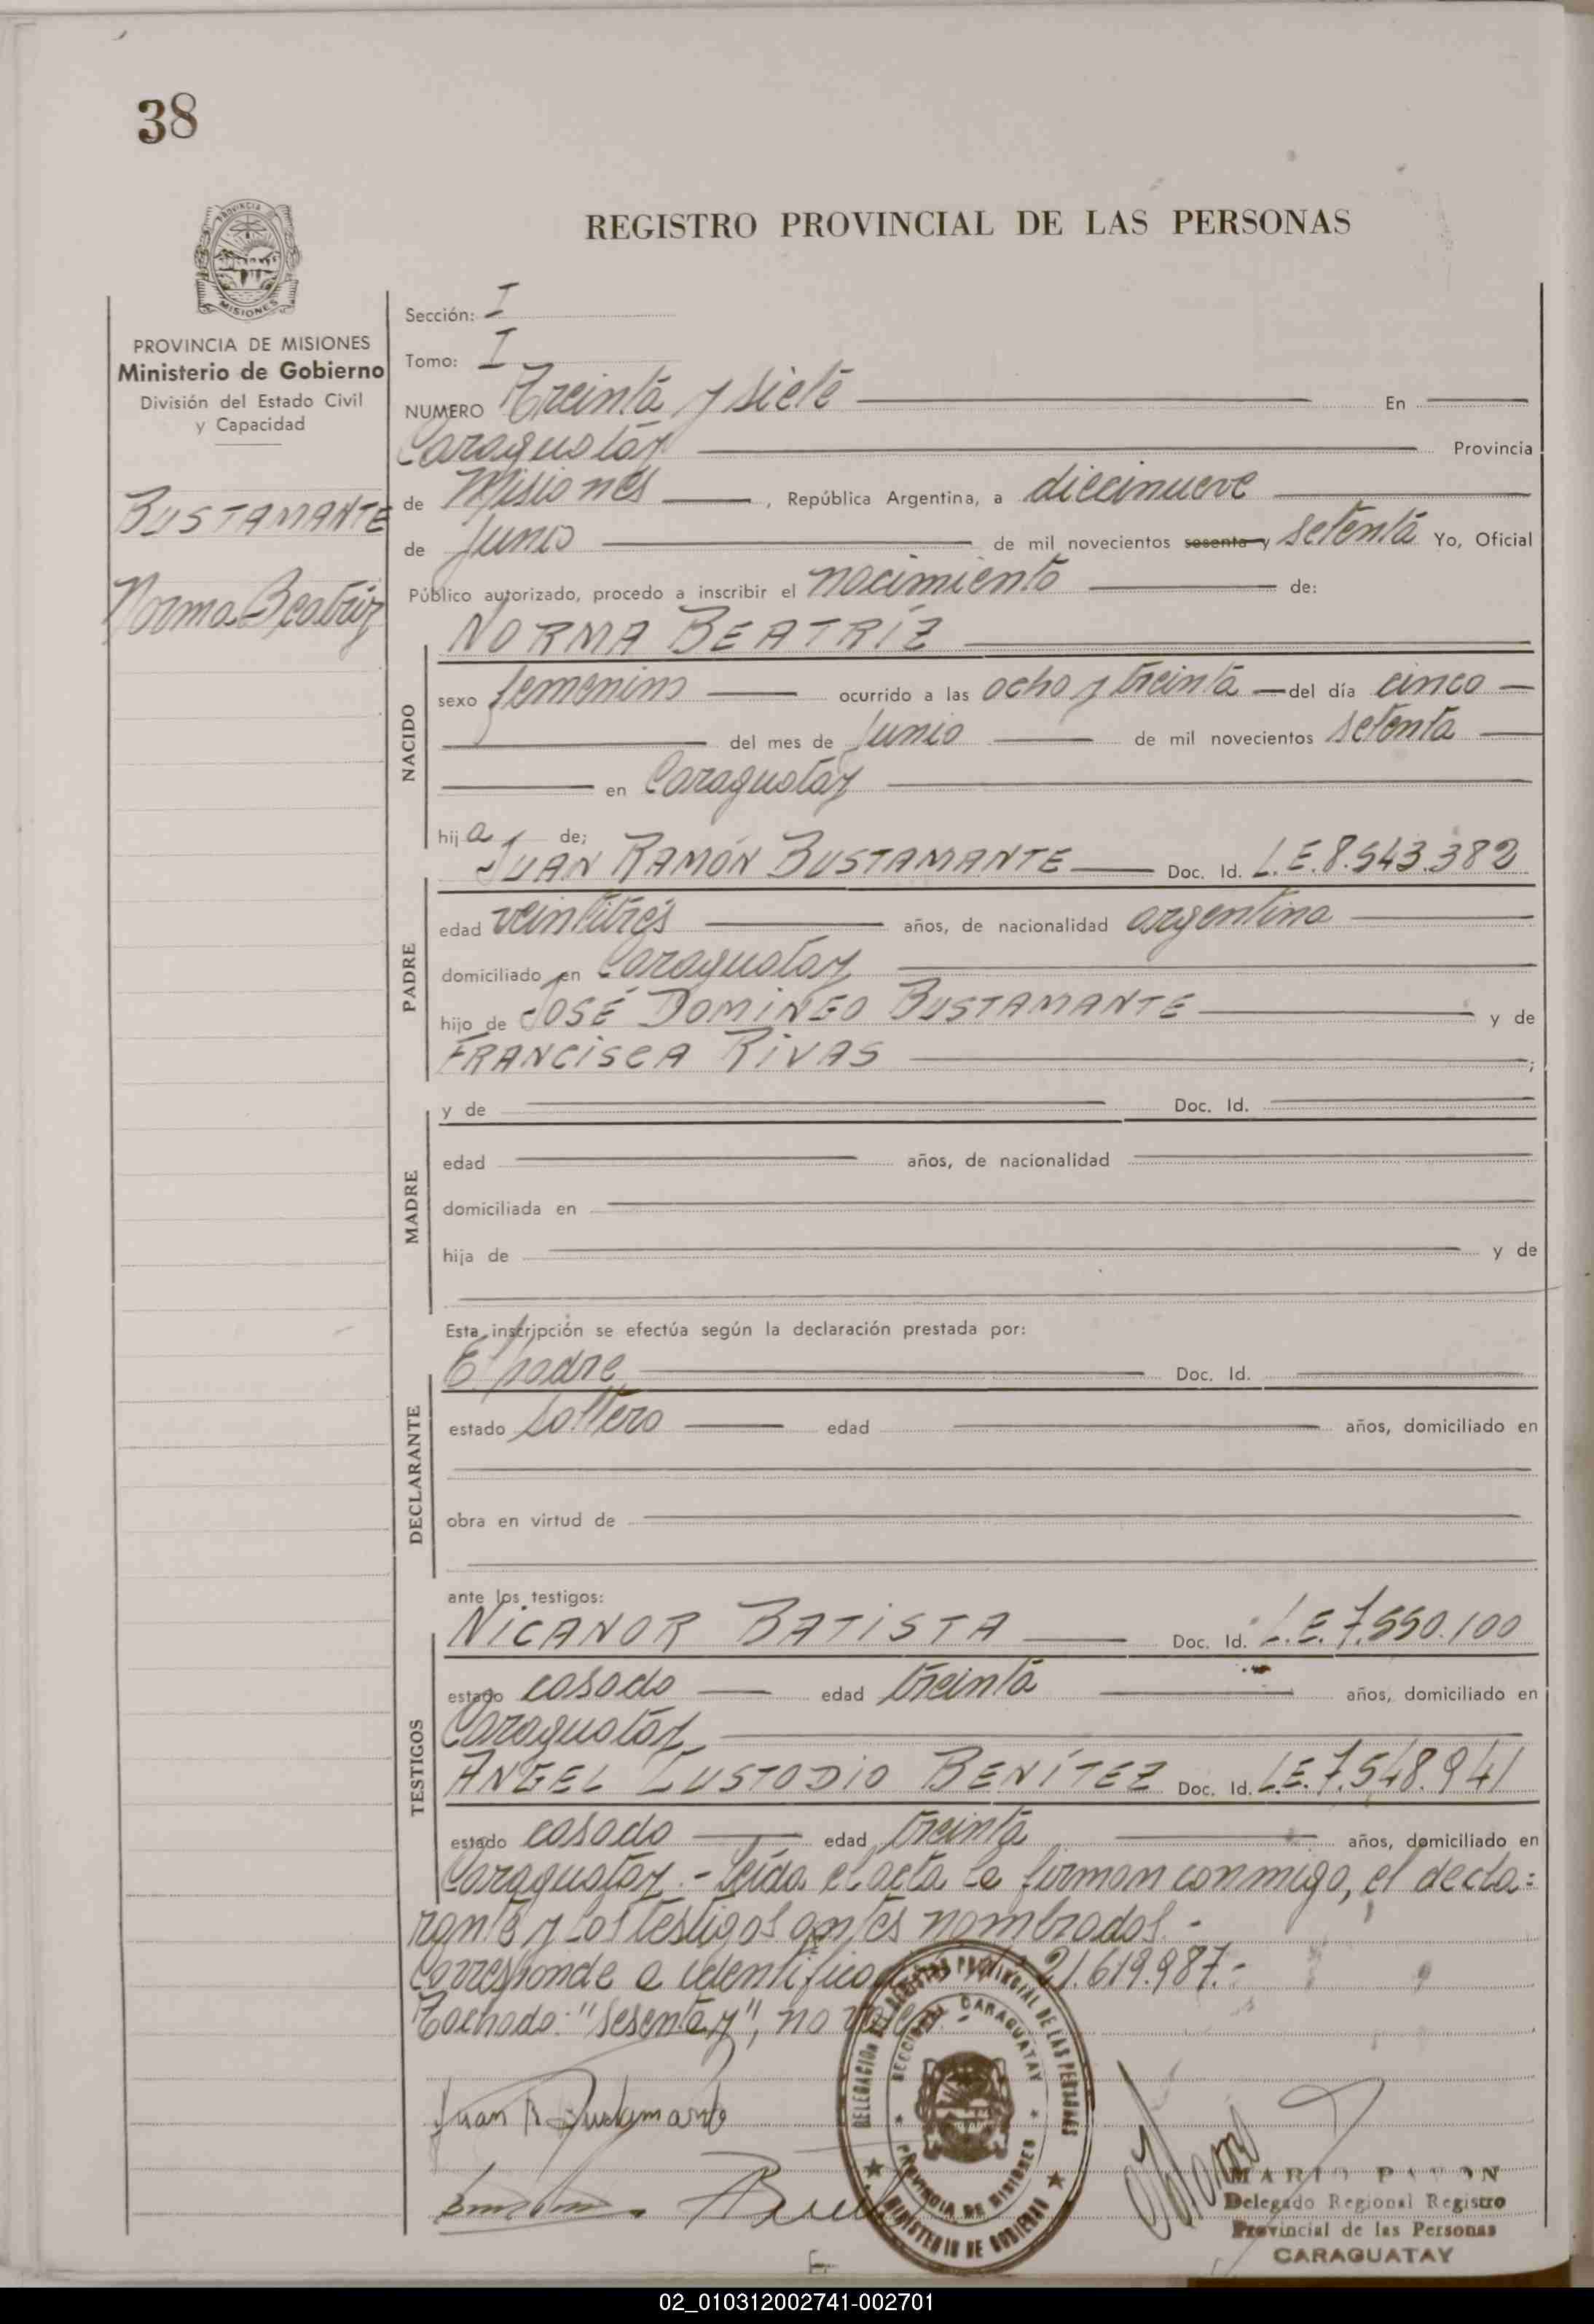 38
PROVINCIA
MISIONES
REGISTRO PROVINCIAL DE LAS PERSONAS
PROVINCIA DE MISIONES
Ministerio de Gobierno
División del Estado Civil
y Capacidad
BUSTAMANTE
Norma Beatriz
Sección: I
Tomo: I
NUMERO Treinta y siete En
Caraguatay Provincia
de Misiones, República Argentina, a diecinueve
de Junio de mil novecientos sesenta y setenta Yo, Oficial
Público autorizado, procedo a inscribir el nacimiento de:
NACIDO
NORMA BEATRÍZ
sexo femenino ocurrido a las ocho y treinta del día cinco
del mes de Junio de mil novecientos setenta
en Caraguatay
hija de;
PADRE
JUAN RAMÓN BUSTAMANTE Doc. Id. L.E. 8.543.382
edad veintitrés años, de nacionalidad argentina
domiciliado en Caraguatay
hijo de JOSÉ DOMINGO BUSTAMANTE y de
FRANCISCA RIVAS ;
MADRE
y de Doc. Id.
edad años, de nacionalidad
domiciliada en
hija de y de
Esta inscripción se efectúa según la declaración prestada por:
DECLARANTE
El padre Doc. Id.
estado Soltero edad años, domiciliado en
obra en virtud de
ante los testigos:
TESTIGOS
NICANOR BATISTA Doc. Id. L.E. 7.550.100
estado casado edad treinta años, domiciliado en
Caraguatay
ANGEL CUSTODIO BENÍTEZ Doc. Id. L.E. 7.548.941
estado casado edad treinta años, domiciliado en
Caraguatay.- Leída el acta la firman conmigo, el decla=
rante y los testigos antes nombrados.-
Corresponde a identificado 21.619.987.-
Tachado: "sesenta y", no vale.-
Juan R Bustamante
DELEGACION DEL REGISTRO PROVINCIAL DE LAS PERSONAS
SECCION CARAGUATAY
PROVINCIA DE MISIONES
MINISTERIO DE GOBIERNO
MARIO PAVON
Delegado Regional Registro
Provincial de las Personas
CARAGUATAY
02_010312002741-002701